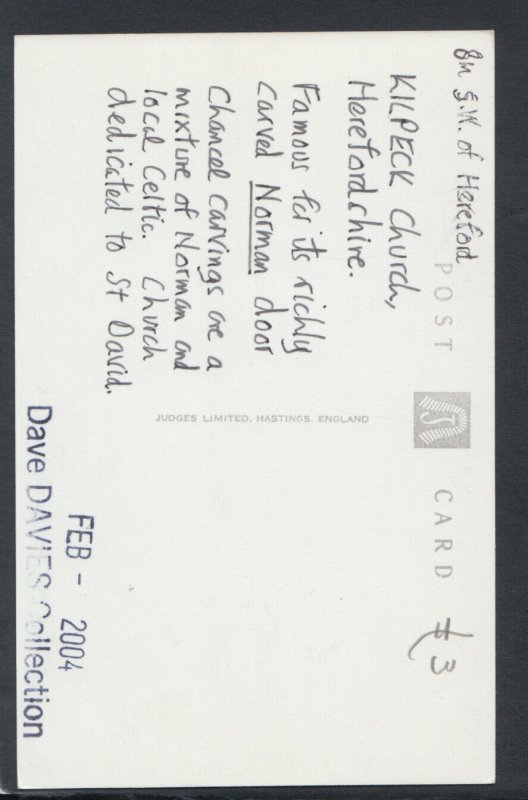 8m S.W. of Hereford
POST CARD
£3
KILPECK Church,
Herefordshire.
Famous for its richly
carved Norman door
Chancel carvings are a
mixture of Norman and
local Celtic. Church
dedicated to St David.
JUDGES LIMITED, HASTINGS, ENGLAND
FEB - 2004
Dave DAVIES Collection